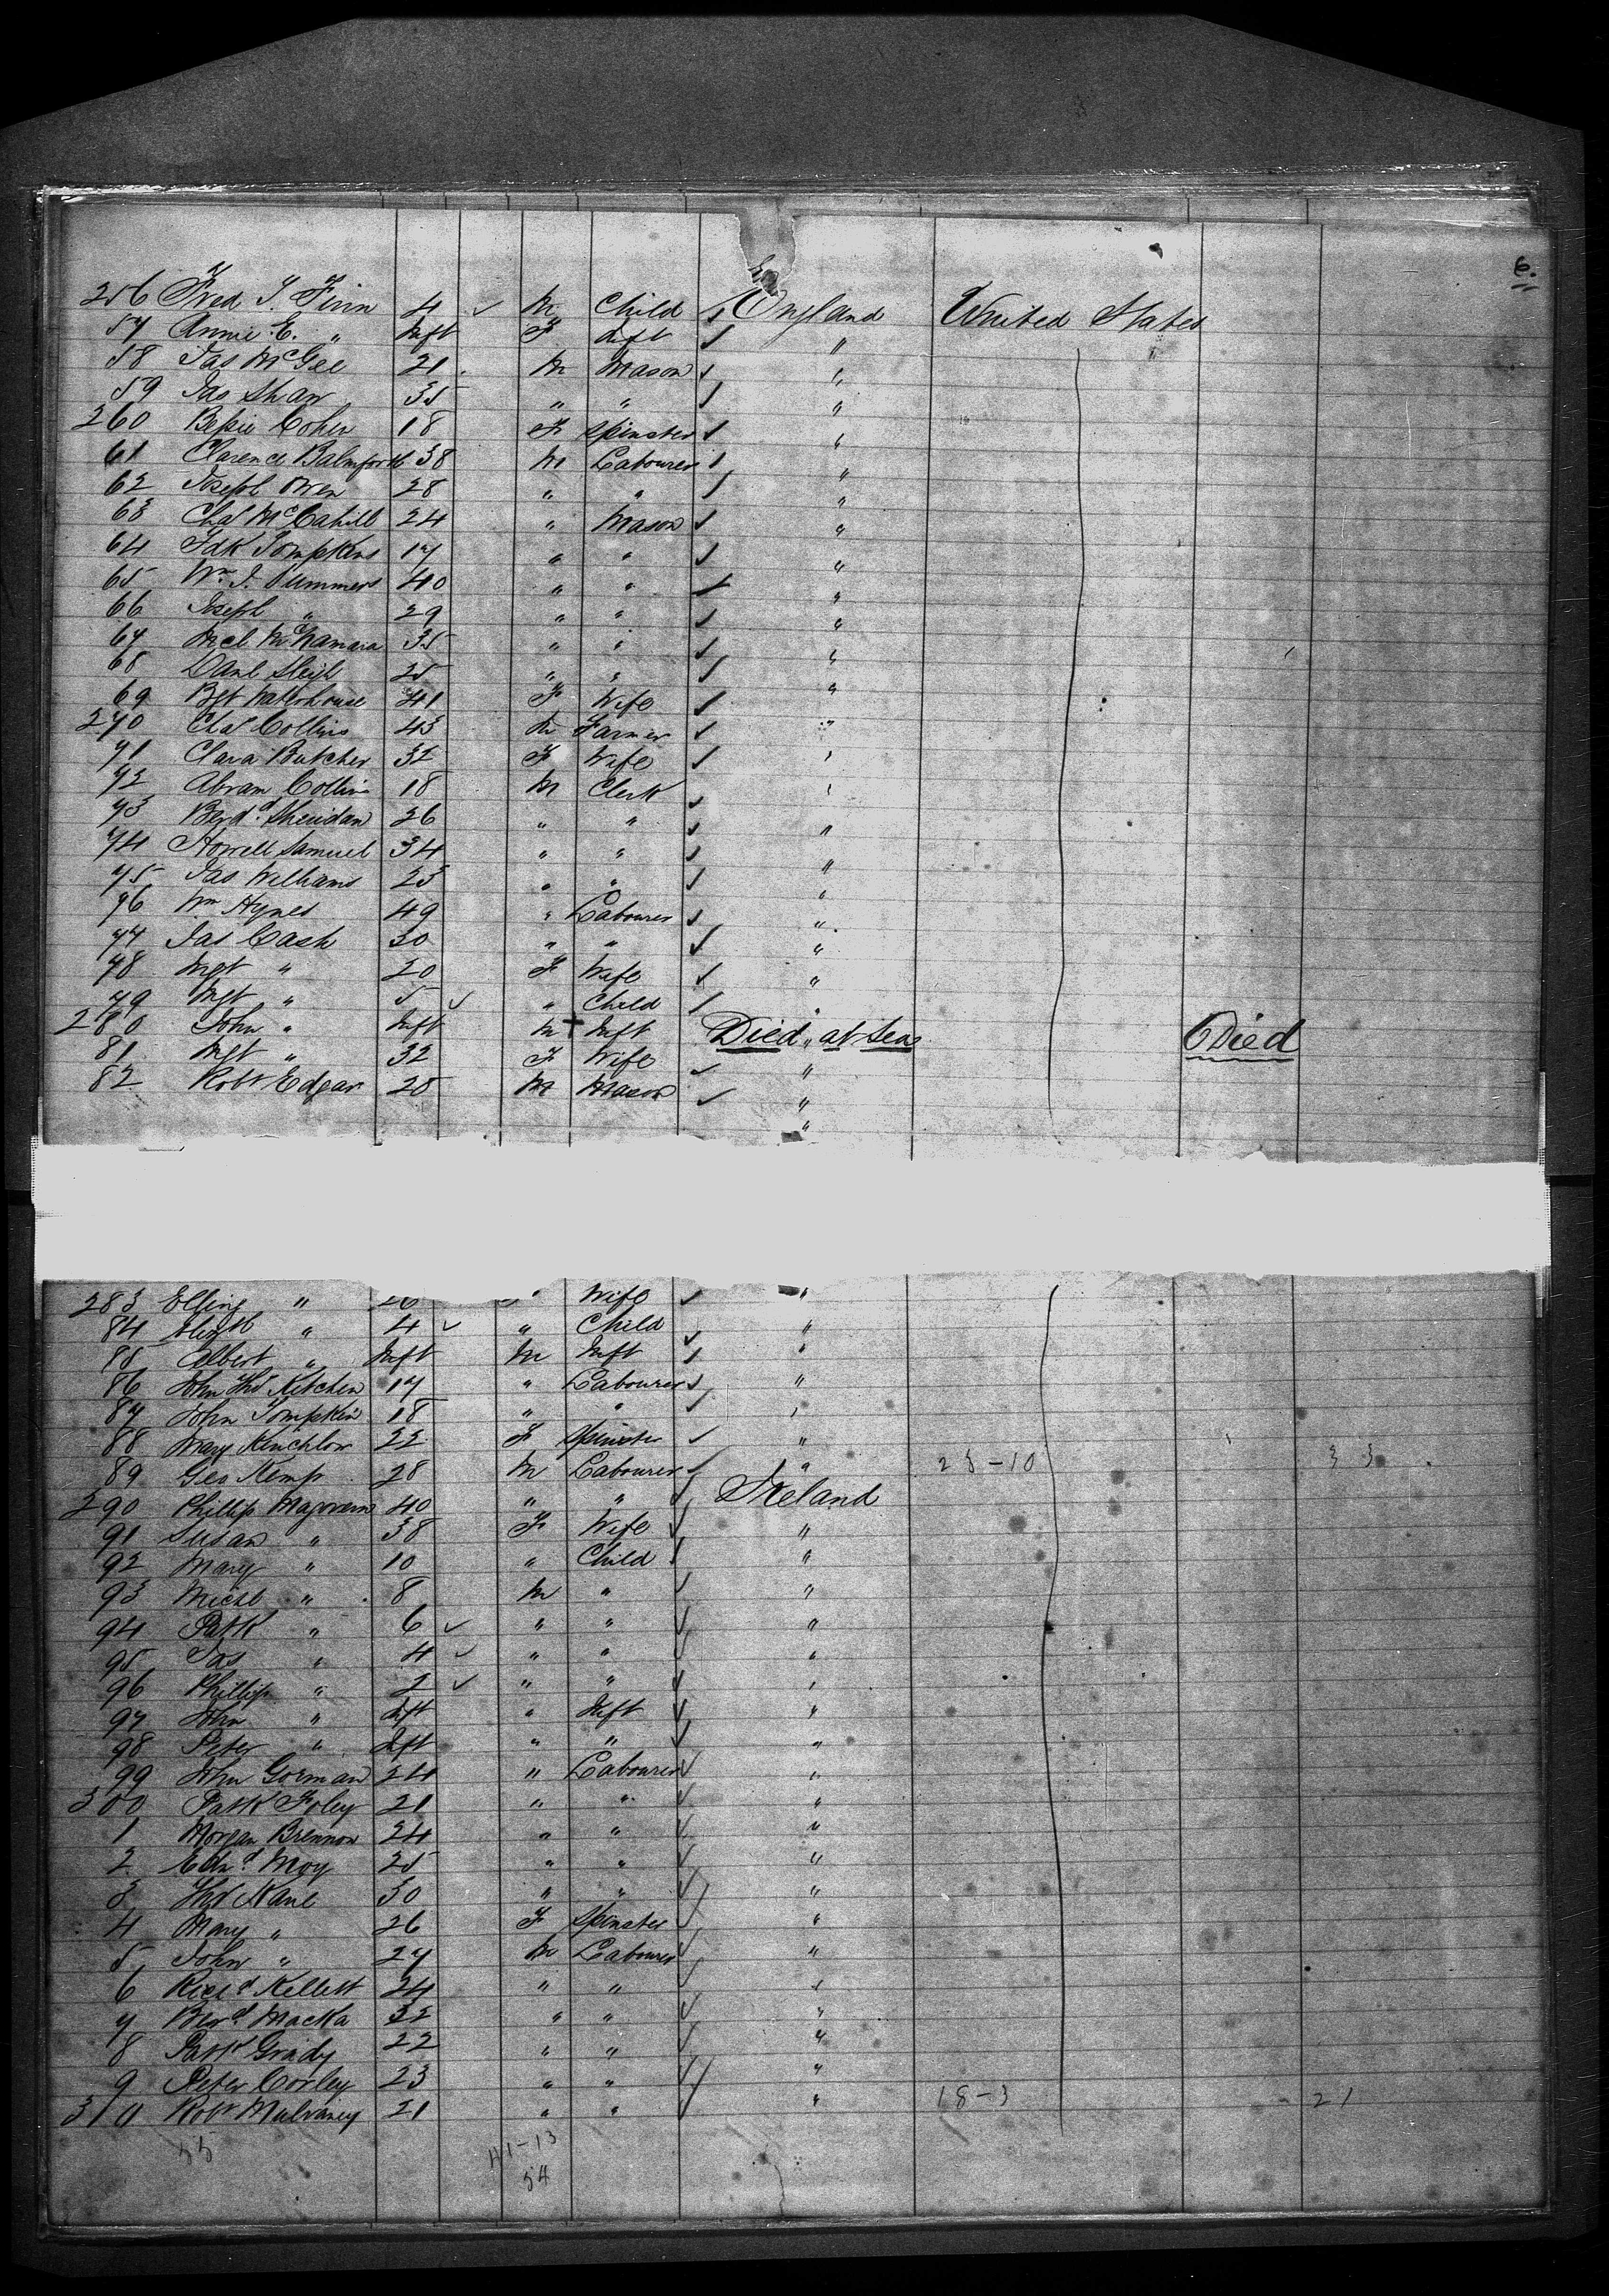 6.
256 Fred T. Finn 4 ✓ M Child ✓ England United States
57 Annie E. " Inft F Inft ✓ "
58 Jas McGee 21 M Mason ✓ "
59 Jas Shaw 35 " " ✓ "
260 Bessie Cohen 18 F Spinster ✓ "
61 Clarence Balmforth 38 M Labourer ✓ "
62 Joseph Owen 28 " " ✓ "
63 Chas McCahill 24 " Mason ✓ "
64 Tompkins 17 " " ✓ "
65 Wm J. Pummers 40 " " ✓ "
66 Joseph " 29 " " ✓ "
67 Mcl McNamara 35 " " ✓ "
68 Danl Sleigh 25 " " ✓ "
69 Bgt Waterhouse 41 F Wife ✓ "
270 Chas Collins 43 M Farmer ✓ "
71 Clara Butcher 32 F Wife ✓ "
72 Abram Collins 18 M Clerk ✓ "
73 Berd. Sheridan 26 " " ✓ "
74 Howell Samuel 34 " " ✓ "
75 Jas Williams 23 " " ✓ "
76 Wm Hynes 49 " Labourer ✓ "
77 Jas Cash 30 " " ✓ "
78 Mgt " 20 F Wife ✓ "
79 Mgt " 5 ✓ " Child ✓ "
280 John " Inft M + Inft Died at Sea Died
81 Mgt " 32 F Wife ✓ "
82 Robt Edgar 25 M Mason ✓ "
283 " 26 Wife ✓ "
84 " 4 ✓ " Child ✓ "
85 Albert " Inft M Inft ✓ "
86 John Thos Kitchen 17 " Labourer ✓ "
87 John Tompkin 18 " " ✓ "
88 Mary Kinchlow 22 F Spinster ✓ "
89 Geo Kemp 28 M Labourer ✓ " 23-10 33
290 Phillip Magovern 40 " " ✓ Ireland
91 Susan " 38 F Wife ✓ "
92 Mary " 10 " Child ✓ "
93 Michl " 8 M " ✓ "
94 Patk " 6 ✓ " " ✓ "
95 Jas " 4 ✓ " " ✓ "
96 Phillip " 2 ✓ " " ✓ "
97 John " Inft " Inft ✓ "
98 Peter " Inft " " ✓ "
99 John Gorman 24 " Labourer ✓ "
300 Patk Foley 21 " " ✓ "
1 Morgan Brennon 24 " " ✓ "
2 Edwd Moy 25 " " ✓ "
3 Thos Kane 30 " " ✓ "
4 Mary " 26 F Spinster ✓ "
5 John " 27 M Labourer ✓ "
6 Richd Kellett 24 " " ✓ "
7 Berd Macka 22 " " ✓ "
8 Patk Grady 22 " " ✓ "
9 Peter Corley 23 " " ✓ "
310 Robt Mulvaney 21 " " ✓ " 18-3 21
55 41-13
54